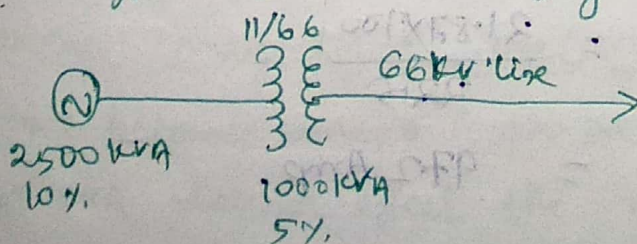 11/66
66kv line
2500 KVA
10%.
1000 KVA
5%.